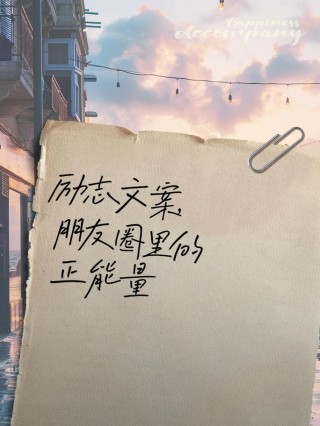 Happiness
Accompany
励志文案,
朋友圈里的
正能量